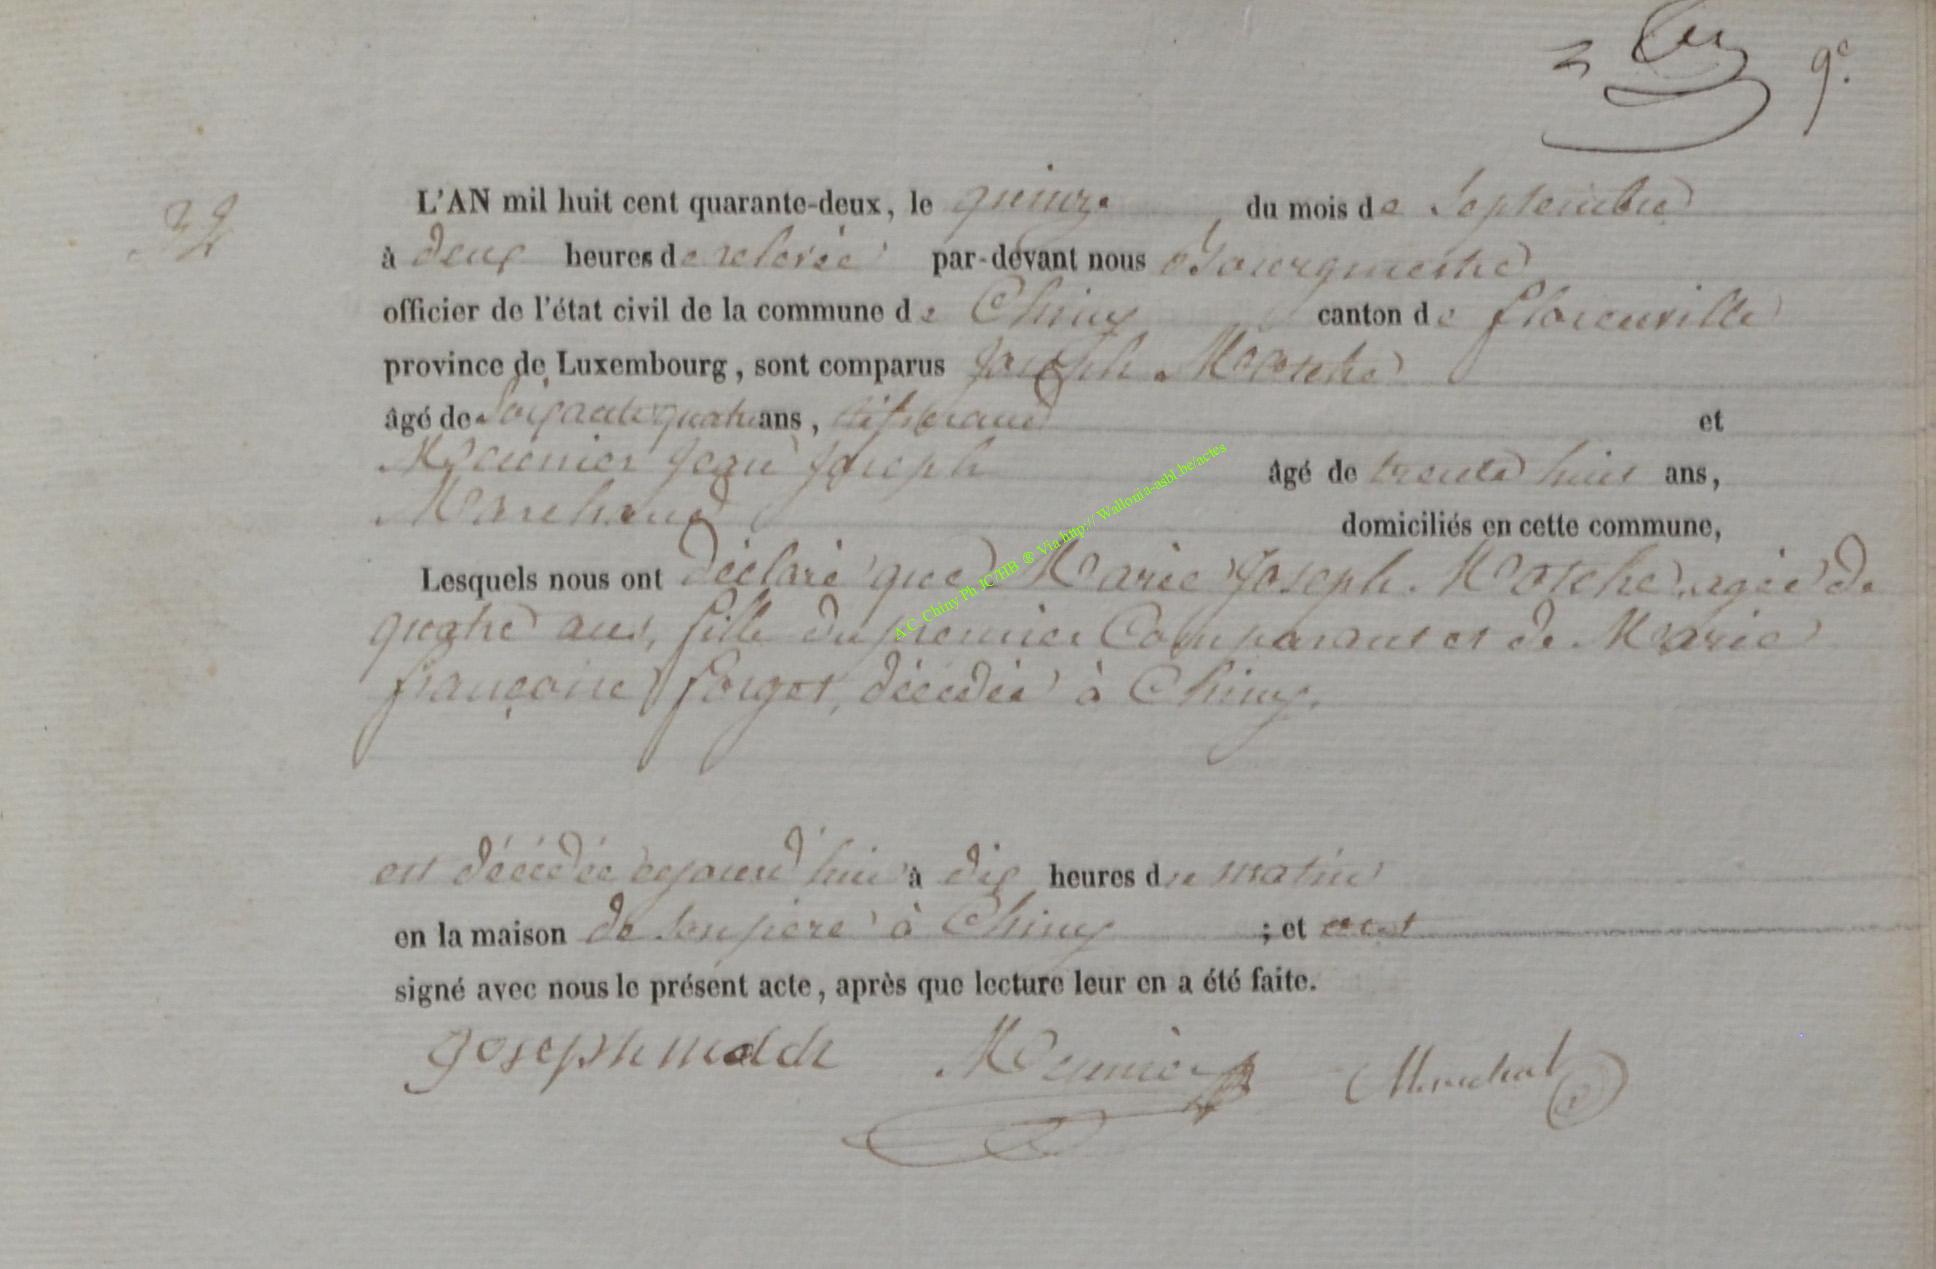 9e.
32
L'AN mil huit cent quarante-deux, le quinze du mois de Septembre
à deux heures de relevée par-devant nous Bourgmestre
officier de l'état civil de la commune de Chiny canton de florenville
province de Luxembourg, sont comparus Joseph
âgé de Soixante quatre ans, et
Meunier Jean Joseph âgé de trente huit ans,
Marchand domiciliés en cette commune,
Lesquels nous ont déclaré que Marie Joseph agée de
quatre ans, fille du premier Comparant et de Marie
françoise forget, décédée à Chiny,
est décédée cejourd'hui à dix heures du matin
en la maison de son père à Chiny ; et ont
signé avec nous le présent acte, après que lecture leur en a été faite.
Joseph Meunier Marechal
A.C. Chiny Ph JC/HB ® Via http:// Wallonia-asbl.be/actes